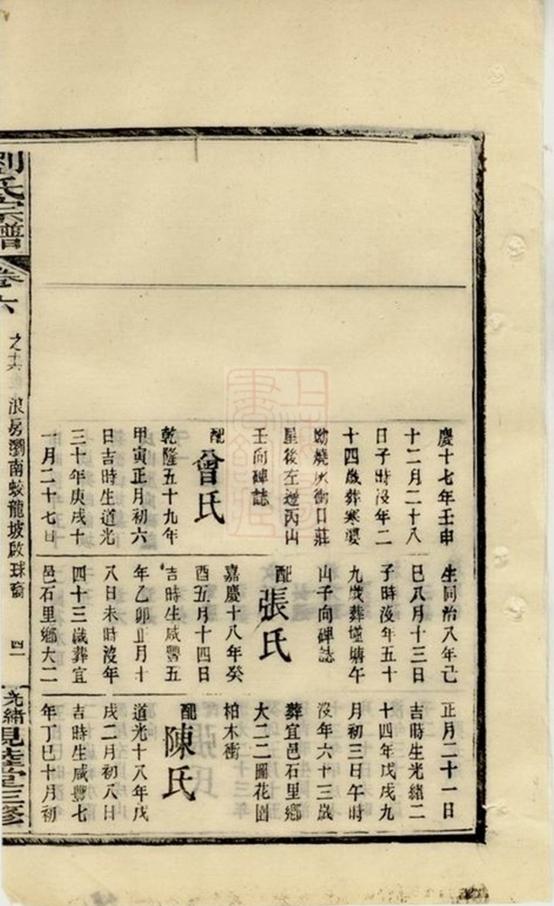 慶十七年壬申
十二月二十八
日子時沒年二
十四歲葬寒婆
坳燒灰衝日莊
屋後左邊丙山
壬向碑誌
配曾氏
乾隆五十九年
甲寅正月初六
日吉時生道光
三十年庚戌十
一月二十七日
生同治八年己
巳八月十三日
子時沒年五十
九歲葬墟塘午
山子向碑誌
配張氏
嘉慶十八年癸
酉五月十四日
吉時生咸豐五
年乙卯正月十
八日未時沒年
四十三歲葬宜
邑石里鄉大二
正月二十一日
吉時生光緒二
十四年戊戌九
月初三日午時
沒年六十三歲
葬宜邑石里鄉
大二二圖花園
柏木衝
配陳氏
道光十八年戊
戌二月初八日
吉時生咸豐七
年丁巳十月初
劉氏宗譜
卷六
之十六
浪房瀏南蛟龍坡啟球裔
四一
光緒
三修